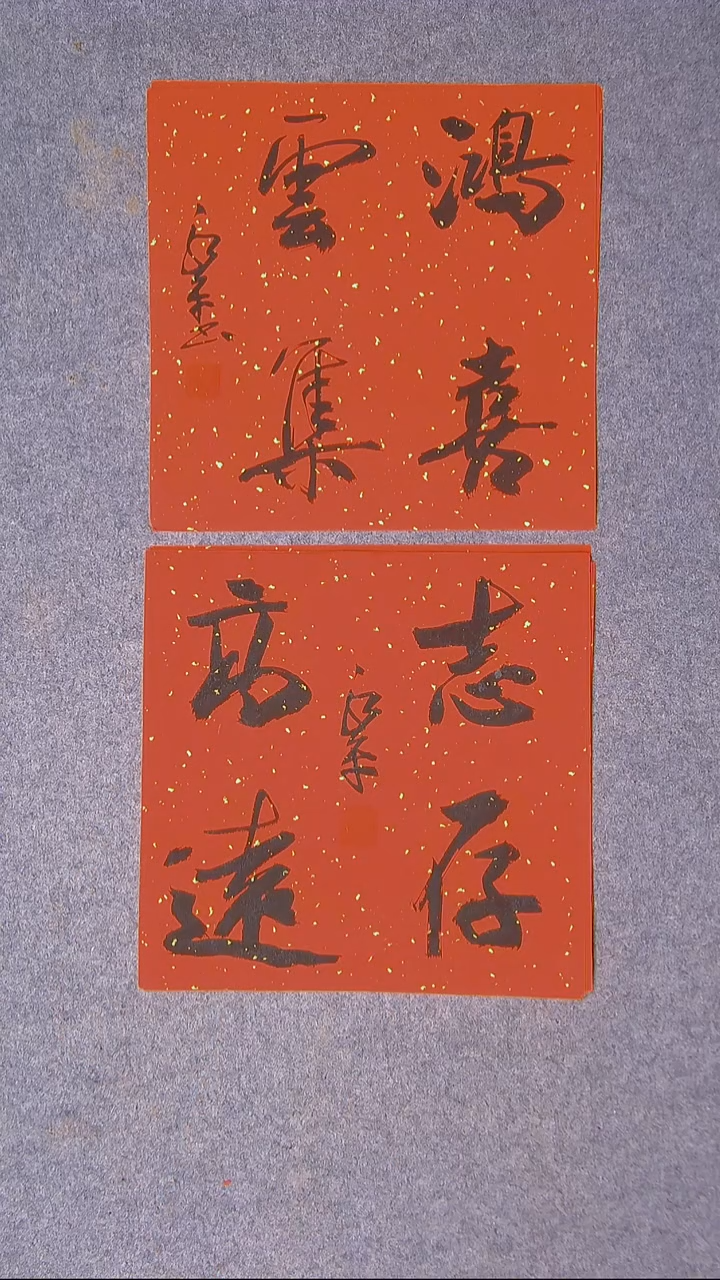 鴻喜
雲集
志存
高遠